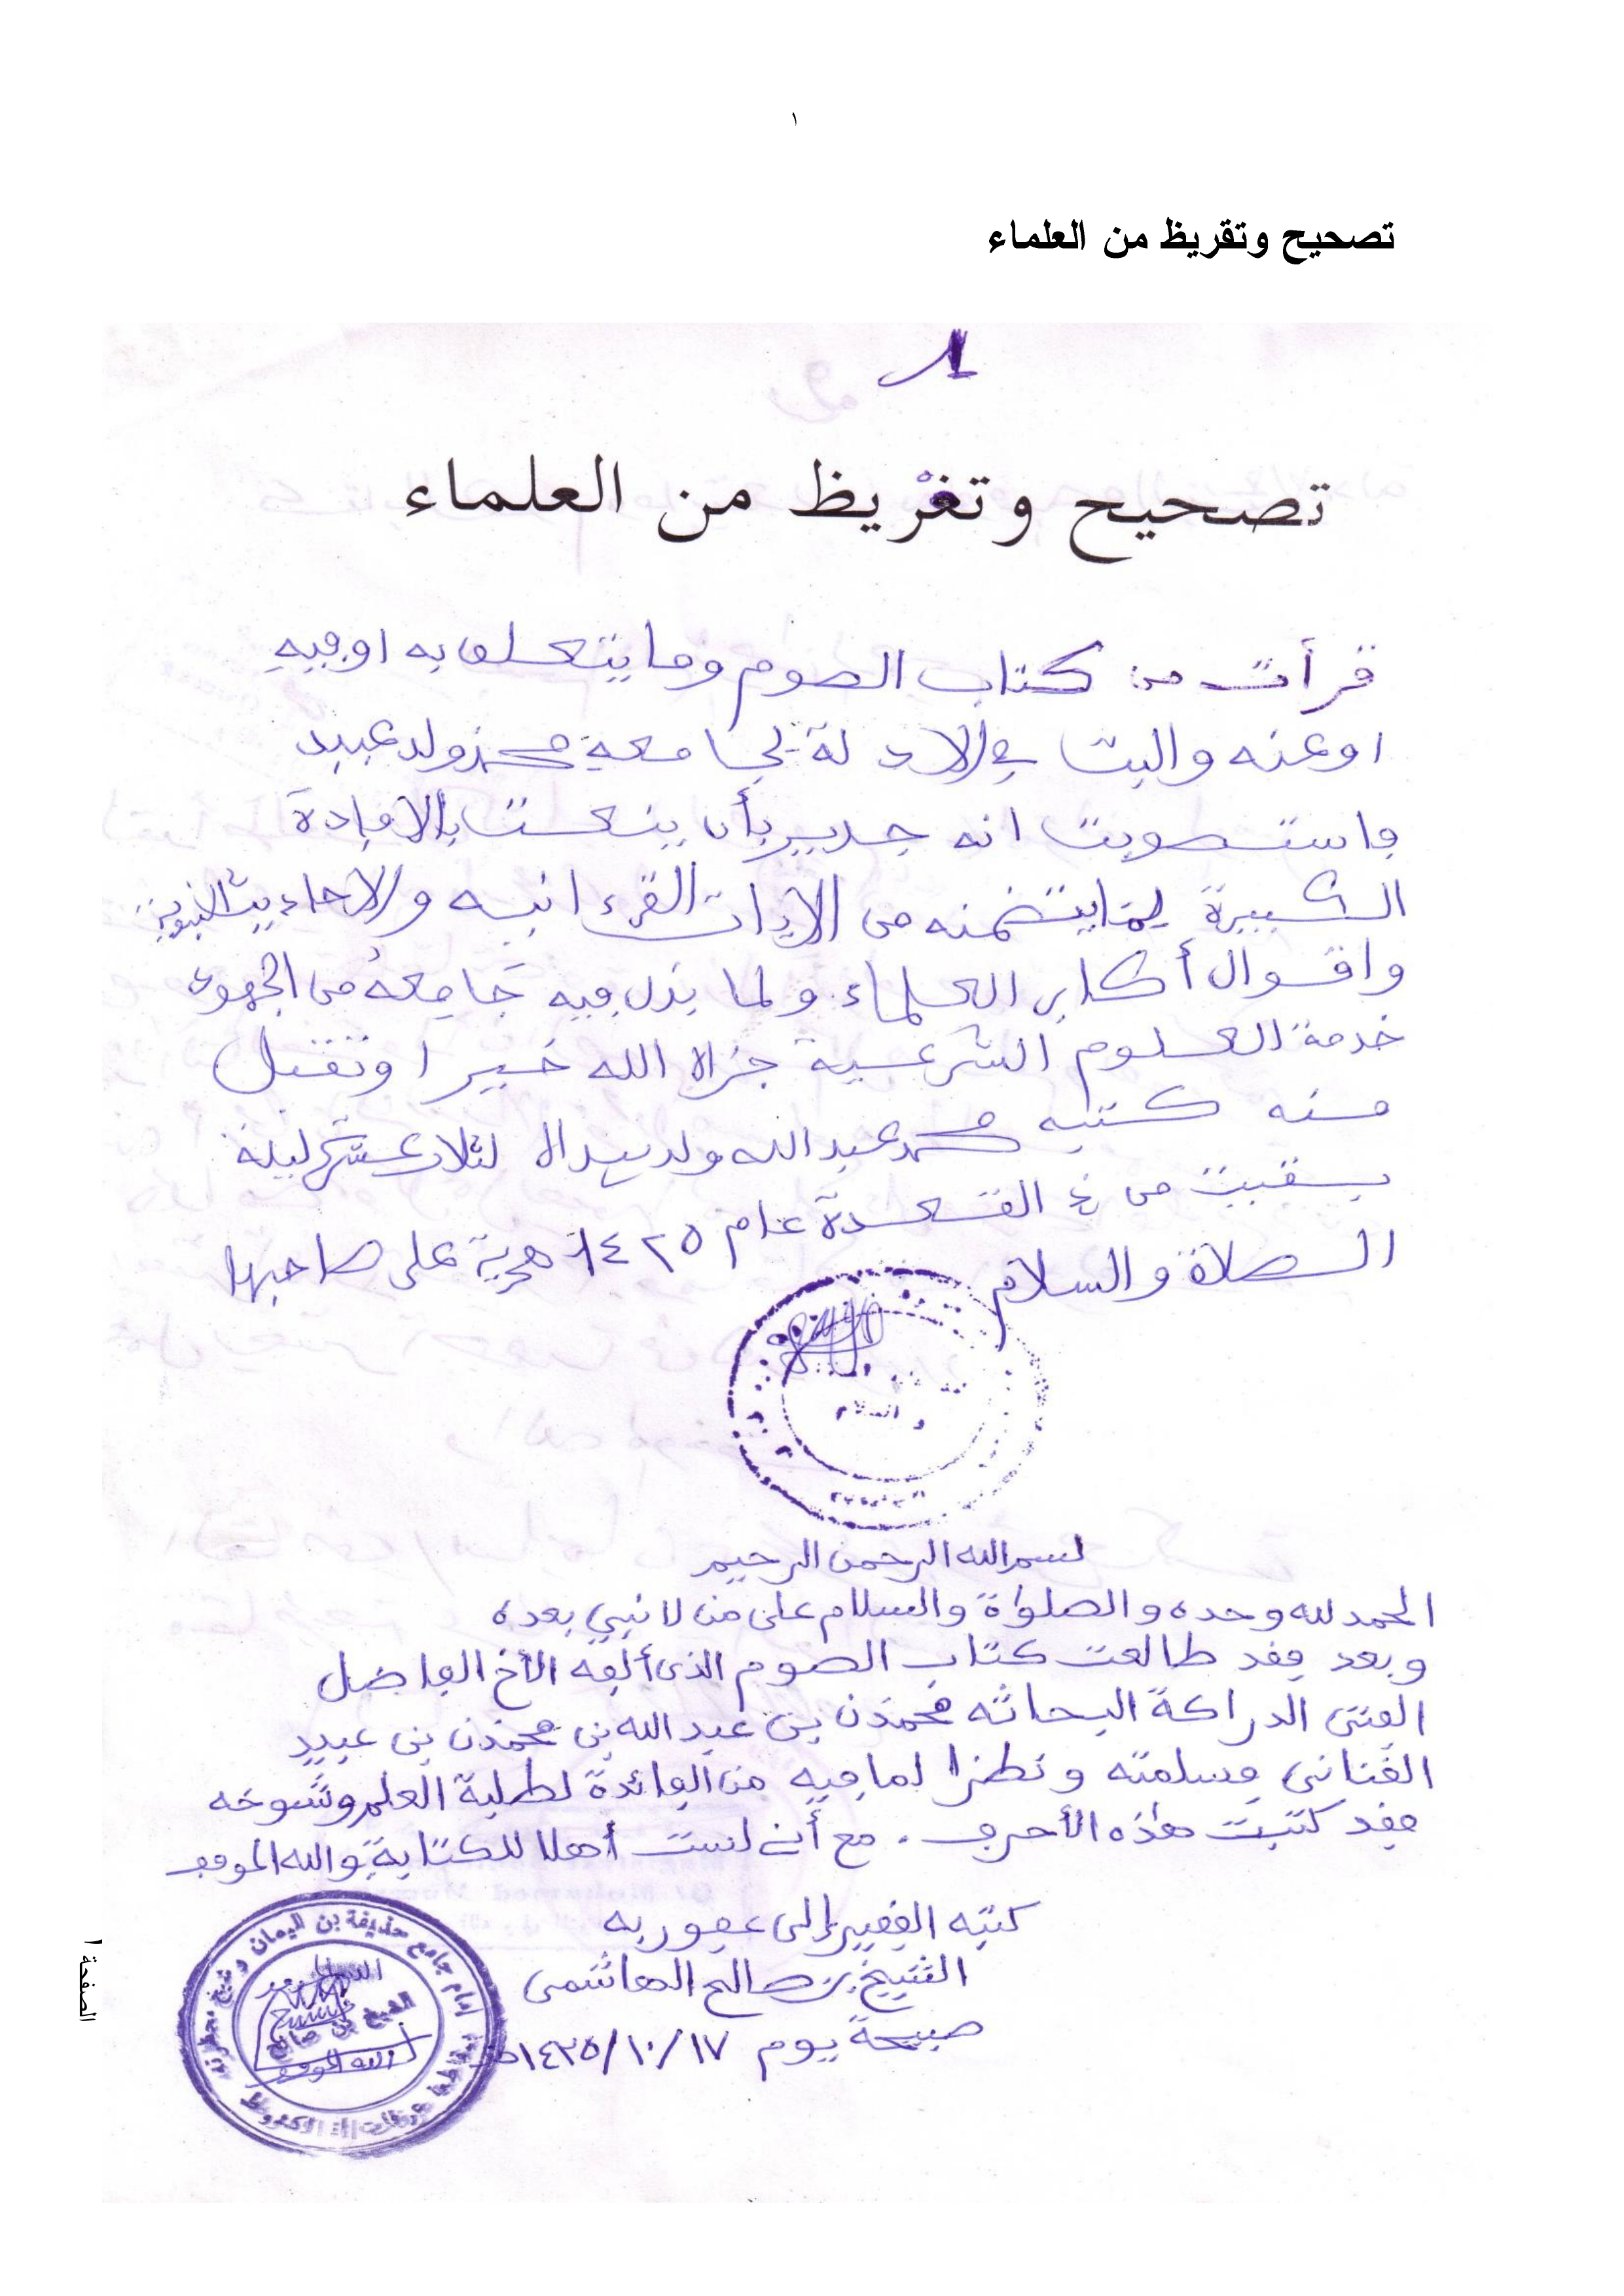 ١
تصحيح وتقريظ من العلماء
تصحيح وتغريظ من العلماء
قرأت من كتاب الصوم وما يتعلق به او فيه
او عنه والبت في الادلة لجامعه محمذ ولد عبيد
فاستصوبت انه جدير بأن ينعت بالافادة
الكبيرة لما يتضمنه من الايات القرءانيه والاحاديث النبوية
واقوال أكابر العلماء ولما بذل فيه جامعه من الجهود
خدمة العلوم الشرعية جزاه الله خيرا وتقبل
منه كتبه محمد عبد الله ولد لثلاث عشرة ليلة
بقيت من ذي القعدة عام ١٤٢٥ هجرية على صاحبها
الصلاة والسلام
والسلام
بسم الله الرحمن الرحيم
الحمد لله وحده والصلواة والسلام على من لا نبي بعده
وبعد فقد طالعت كتاب الصوم الذى ألفه الأخ الفاضل
الفتى الدراكة البحاثه محمذن بن عبد الله بن محمذن بن عبيد
الفنانى فسلمته ونظرا لما فيه من الفائدة لطلبة العلم وشيوخه
فقد كتبت هذه الأحرف. مع أنى لست أهلا للكتابة والله الموفق
كتبه الفقير إلى عفو ربه
الشيخ بن صالح الهاشمى
صبيحة يوم ١٤٣٥/١٠/١٧هـ
إمام جامع حذيفة بن اليمان و شيخ محظرته
الشيخ بن صالح
الصفحة ١